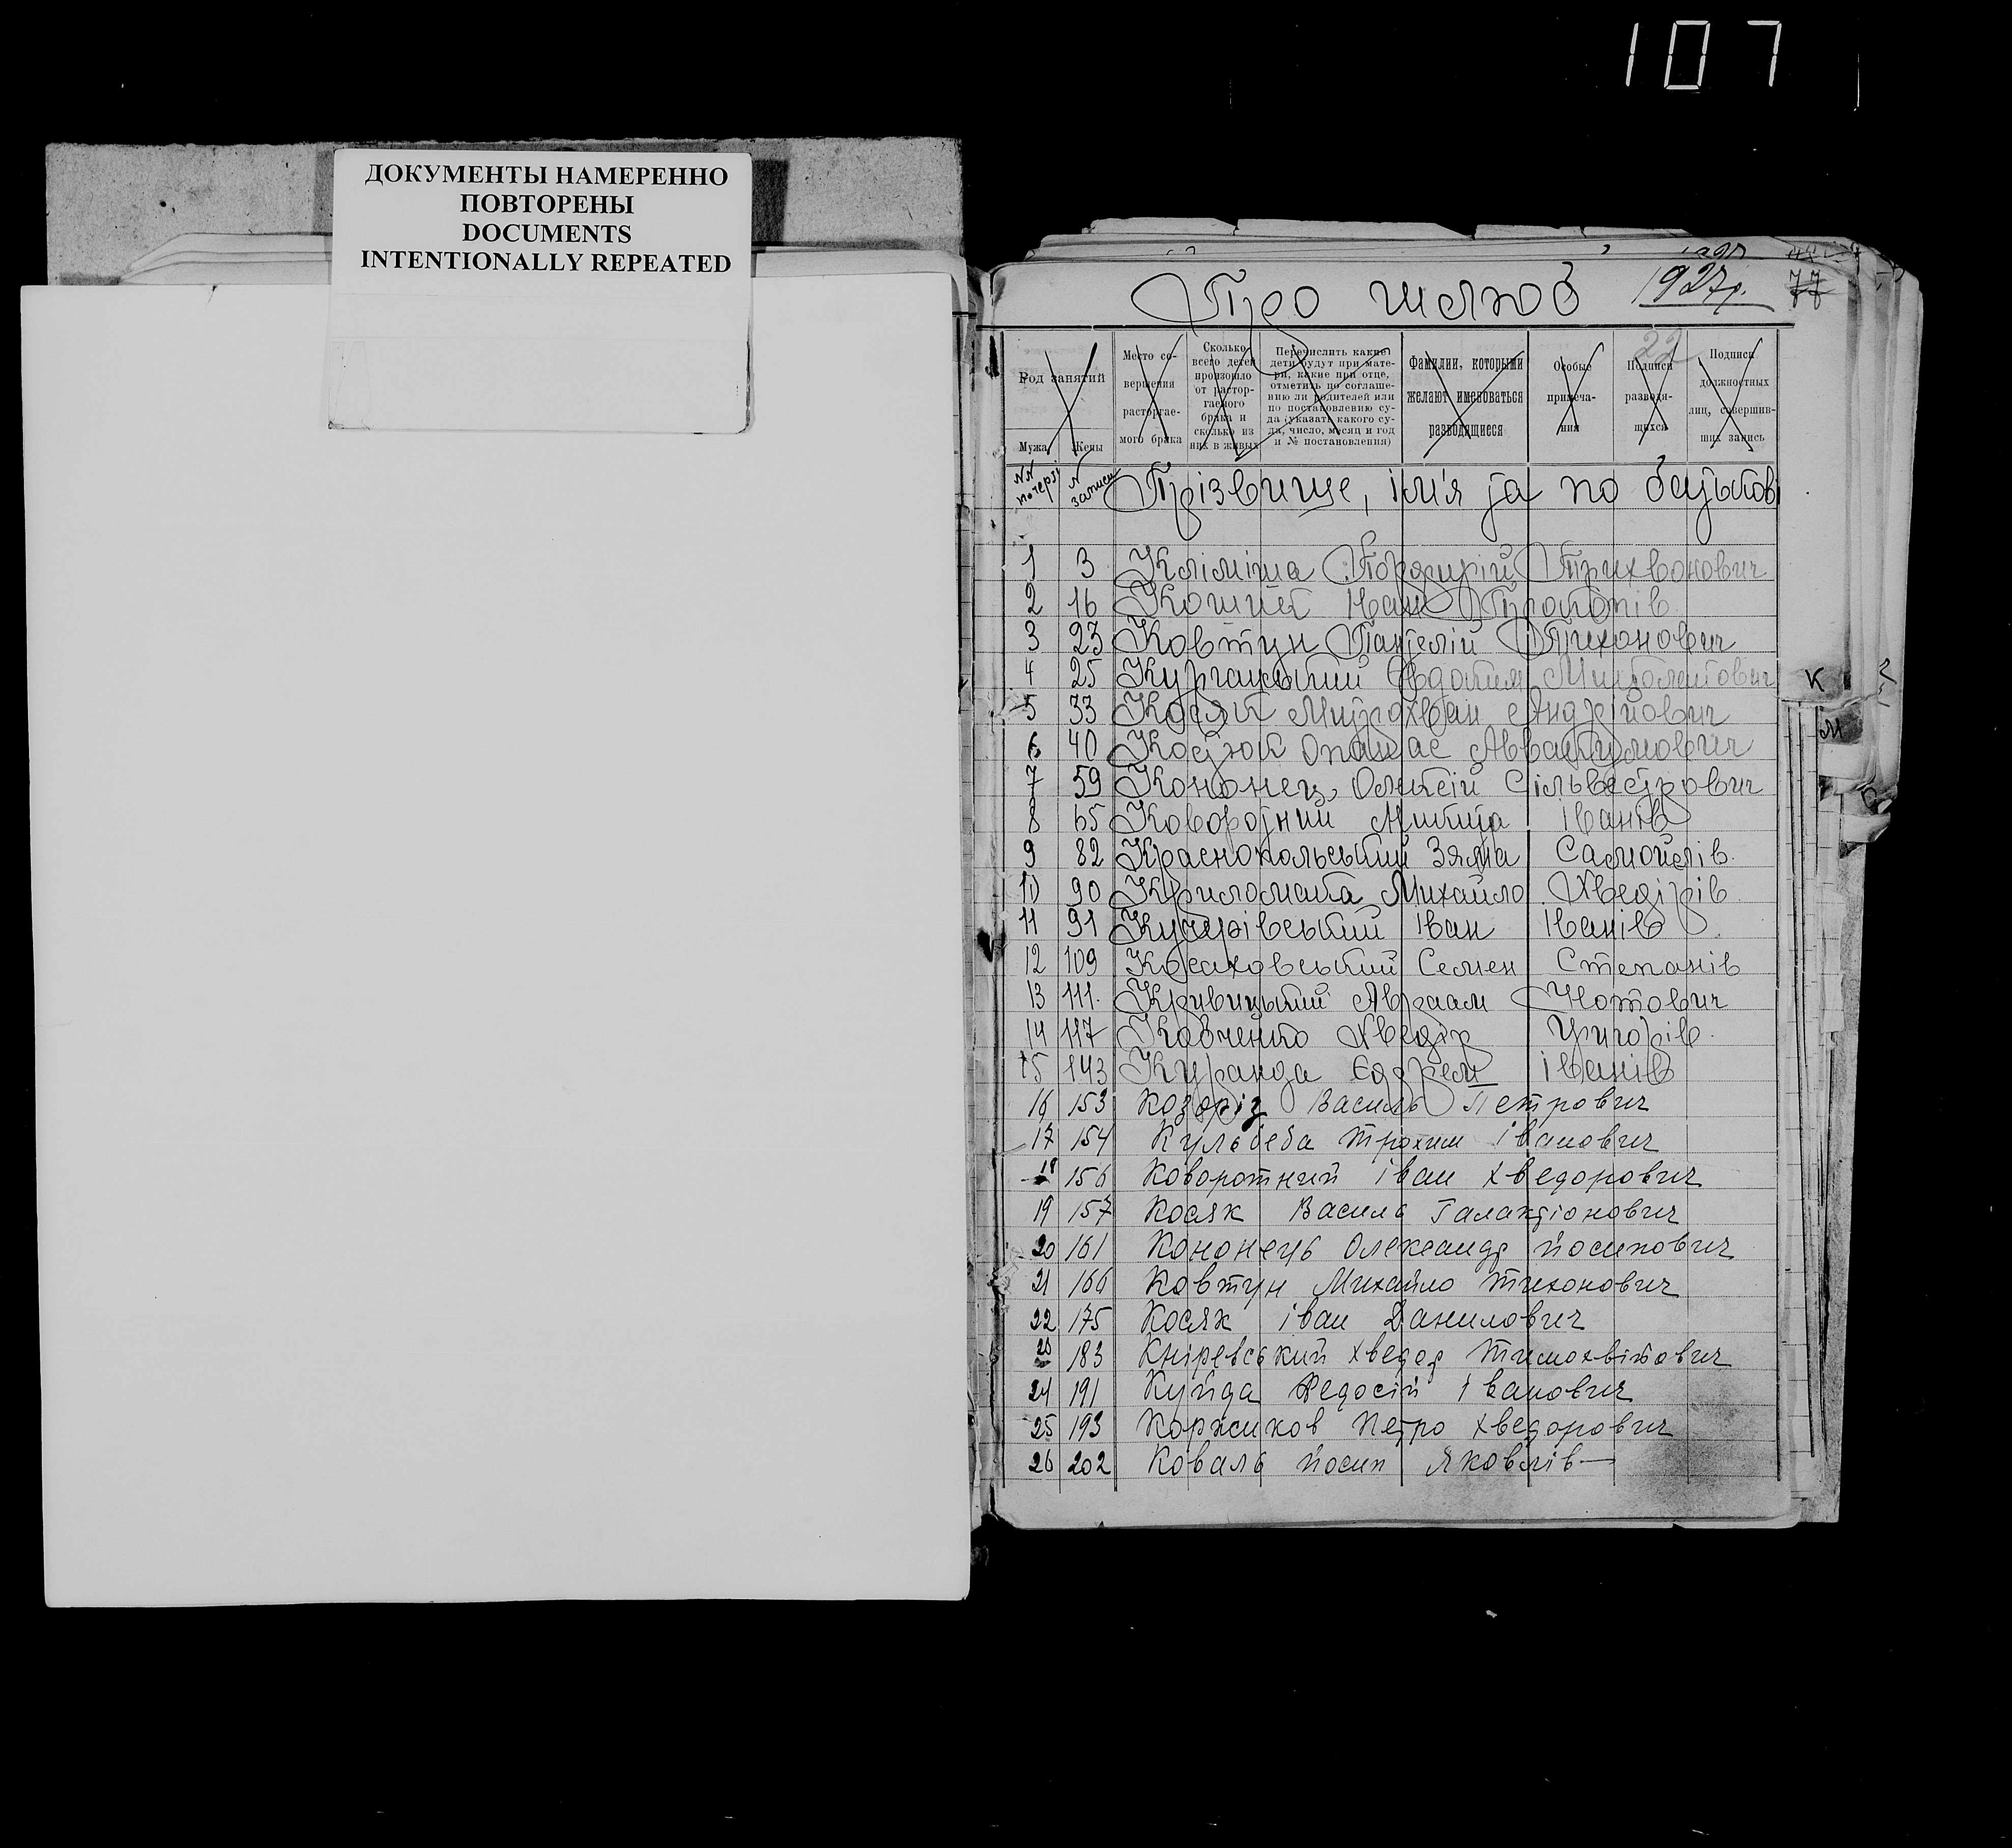 107
ДОКУМЕНТЫ НАМЕРЕННО
ПОВТОРЕНЫ
DOCUMENTS
INTENTIONALLY REPEATED
Про шлюб 1927р. 77
22
Род занятий
Мужа Жены
Место со-
вершения
расторгае-
мого брака
Сколько
всего детей
произошло
от растор-
гаемого
брака и
сколько из
них в живых
Перечислить какие
дети будут при мате-
ри, какие при отце,
отметить по соглаше-
нию ли родителей или
по постановлению су-
да (указать какого су-
да, число, месяц и год
и № постановления)
Фамилии, которыми
желают именоваться
разводящиеся
Особые
примеча-
ния
Подписи
разводя-
щихся
Подписи
должностных
лиц, совершив-
ших запись
NN по черзі N записи Прізвище, ім'я та по батькові
1 3 Кліміша Порфирій Трихвонович
2 16 Іван Прокопів
3 23 Ковтун Пантелій Тихонович
4 25 Курганський Євдоким
5 33 Косяк Митрохван Андрійович
6 40 Костюк Опанас Аввакумович
7 59 Кононец Олексій Сільвестрович
8 65 Коворотний Микита Іванів
9 82 Краснопольський Зяма Самойлів
10 90 Криломата Михайло Хведірів
11 91 Кучерівський Іван Іванів
12 109 Косаховський Семен Степанів
13 111. Кривицький Авраам Нотович
14 117 Кавченко Хведір Григорів
15 143 Куранда Єфрем Іванів
16 153 Козоріз Василь Петрович
17 154 Кульбеба Трохим Іванович
18 156 Коворотний Іван Хведорович
19 157 Косяк Василь Галактіонович
20 161 Кононець Олександр Йосипович
21 166 Ковтун Михайло Тихонович
22 175 Косяк Іван Данилович
23 183 Кніревський Хведор Тимохвійович
24 191 Куйда Федосій Іванович
25 193 Коржиков Петро Хведорович
26 202 Коваль Йосип Яковлів
К
М